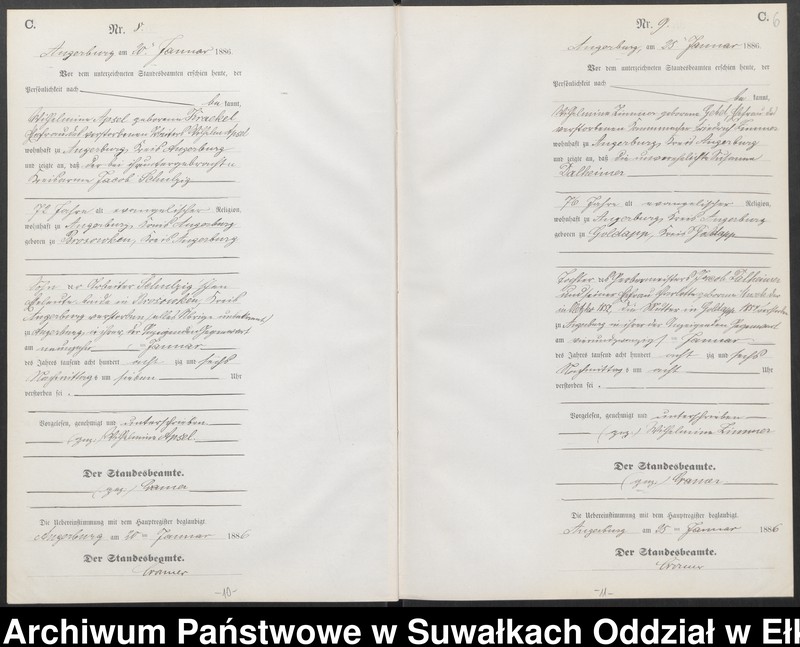 C.
Nr. 8.
Angerburg am 20. Januar 1886.
Vor dem unterzeichneten Standesbeamten erschien heute, der
Persönlichkeit nach
be kannt,
Wilhelmine Apsel geborene
Wilhelm Apsel
wohnhaft zu Angerburg, Kreis Angerburg
und zeigte an, daß der
Jacob Schulzig
72 Jahre alt evangelischer Religion,
wohnhaft zu Angerburg, Kreis Angerburg
geboren zu Brosowken, Kreis Angerburg
Sohn der Arbeiter Schulzig'schen
Eheleute, beide in Brosowken, Kreis
Angerburg verstorben, (alles Übrige unbekannt)
zu Angerburg, in ihrer, der Anzeigenden Gegenwart
am neunzehn ten Januar
des Jahres tausend acht hundert acht zig und sechs
Nachmittags um sieben Uhr
verstorben sei.
Vorgelesen, genehmigt und unterschrieben
(gez.) Wilhelmine Apsel
Der Standesbeamte.
(gez.) Cramer
Die Uebereinstimmung mit dem Hauptregister beglaubigt.
Angerburg am 20ten Januar 1886
Der Standesbeamte.
Cramer
-10-
C. 6
Nr. 9.
Angerburg, am 25. Januar 1886.
Vor dem unterzeichneten Standesbeamten erschien heute, der
Persönlichkeit nach
be kannt,
Wilhelmine Zimmer geborene Ehefrau des
verstorbenen Zimmer
wohnhaft zu Angerburg, Kreis Angerburg
und zeigte an, daß die unverehelichte Susanne
Dalheimer
76 Jahre alt evangelischer Religion,
wohnhaft zu Angerburg, Kreis Angerburg
geboren zu Goldapp, Kreis Goldapp
Tochter des Jacob Dalheimer
und seiner Ehefrau Charlotte geborene
die Mutter in Goldapp verstorben
zu Angerburg in ihrer der Anzeigenden Gegenwart
am vierundzwanzigs ten Januar
des Jahres tausend acht hundert acht zig und sechs
Nachmittags um acht Uhr
verstorben sei.
Vorgelesen, genehmigt und unterschrieben
(gez.) Wilhelmine Zimmer
Der Standesbeamte.
(gez.) Cramer
Die Uebereinstimmung mit dem Hauptregister beglaubigt.
Angerburg am 25ten Januar 1886
Der Standesbeamte.
Cramer
-11-
Archiwum Państwowe w Suwałkach Oddział w Ełk